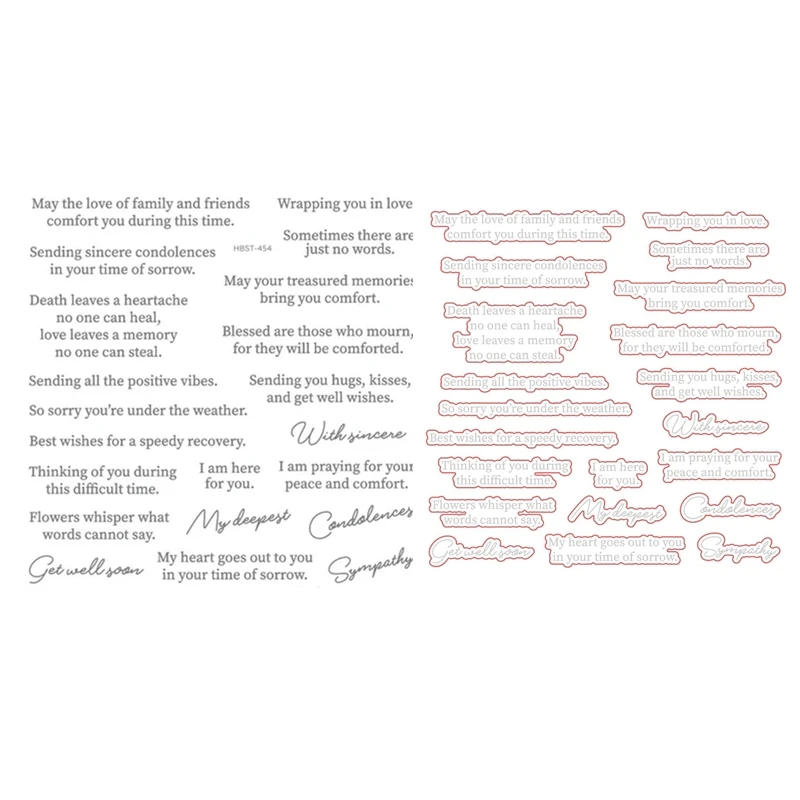 May the love of family and friends
comfort you during this time.
Sending sincere condolences
in your time of sorrow.
Death leaves a heartache
no one can heal,
love leaves a memory
no one can steal.
Sending all the positive vibes.
So sorry you're under the weather.
Best wishes for a speedy recovery.
Thinking of you during
this difficult time.
Flowers whisper what
words cannot say.
Get well soon
Wrapping you in love
Sometimes there are
just no words.
HBST-454
May your treasured memories
bring you comfort.
Blessed are those who mourn,
for they will be comforted.
Sending you hugs, kisses,
and get well wishes.
With sincere
I am here
for you.
I am praying for your
peace and comfort.
My deepest
Condolences
My heart goes out to you
in your time of sorrow.
Sympathy
May the love of family and friends
comfort you during this time.
Sending sincere condolences
in your time of sorrow.
Death leaves a heartache
no one can heal,
love leaves a memory
no one can steal.
Sending all the positive vibes.
So sorry you're under the weather.
Best wishes for a speedy recovery.
Thinking of you during
this difficult time.
Flowers whisper what
words cannot say.
Get well soon
Wrapping you in love.
Sometimes there are
just no words.
May your treasured memories
bring you comfort.
Blessed are those who mourn,
for they will be comforted.
Sending you hugs, kisses,
and get well wishes.
With sincere
I am here
for you.
I am praying for your
peace and comfort.
My deepest
Condolences
My heart goes out to you
in your time of sorrow.
Sympathy